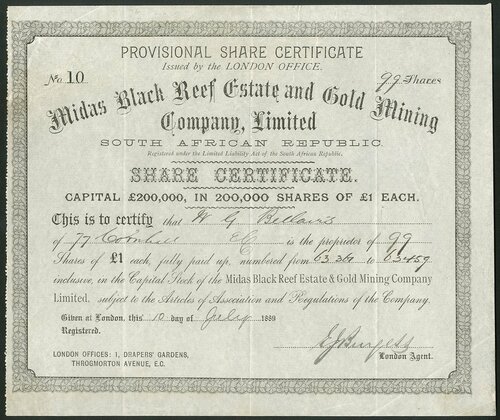 PROVISIONAL SHARE CERTIFICATE
Issued by the LONDON OFFICE.
No. 10 99 Shares
Midas Black Reef Estate and Gold Mining
Company, Limited
SOUTH AFRICAN REPUBLIC.
Registered under the Limited Liability Act of the South African Republic.
SHARE CERTIFICATE.
CAPITAL £200,000, IN 200,000 SHARES OF £1 EACH.
This is to certify that W G
of 77 Cornhill EC is the proprietor of 99
Shares of £1 each, fully paid up, numbered from to 63459
inclusive, in the Capital Stock of the Midas Black Reef Estate & Gold Mining Company
Limited, subject to the Articles of Association and Regulations of the Company.
Given at London, this 10 day of July 1889
Registered.
London Agent.
LONDON OFFICES: 1, DRAPERS' GARDENS,
THROGMORTON AVENUE, E.C.